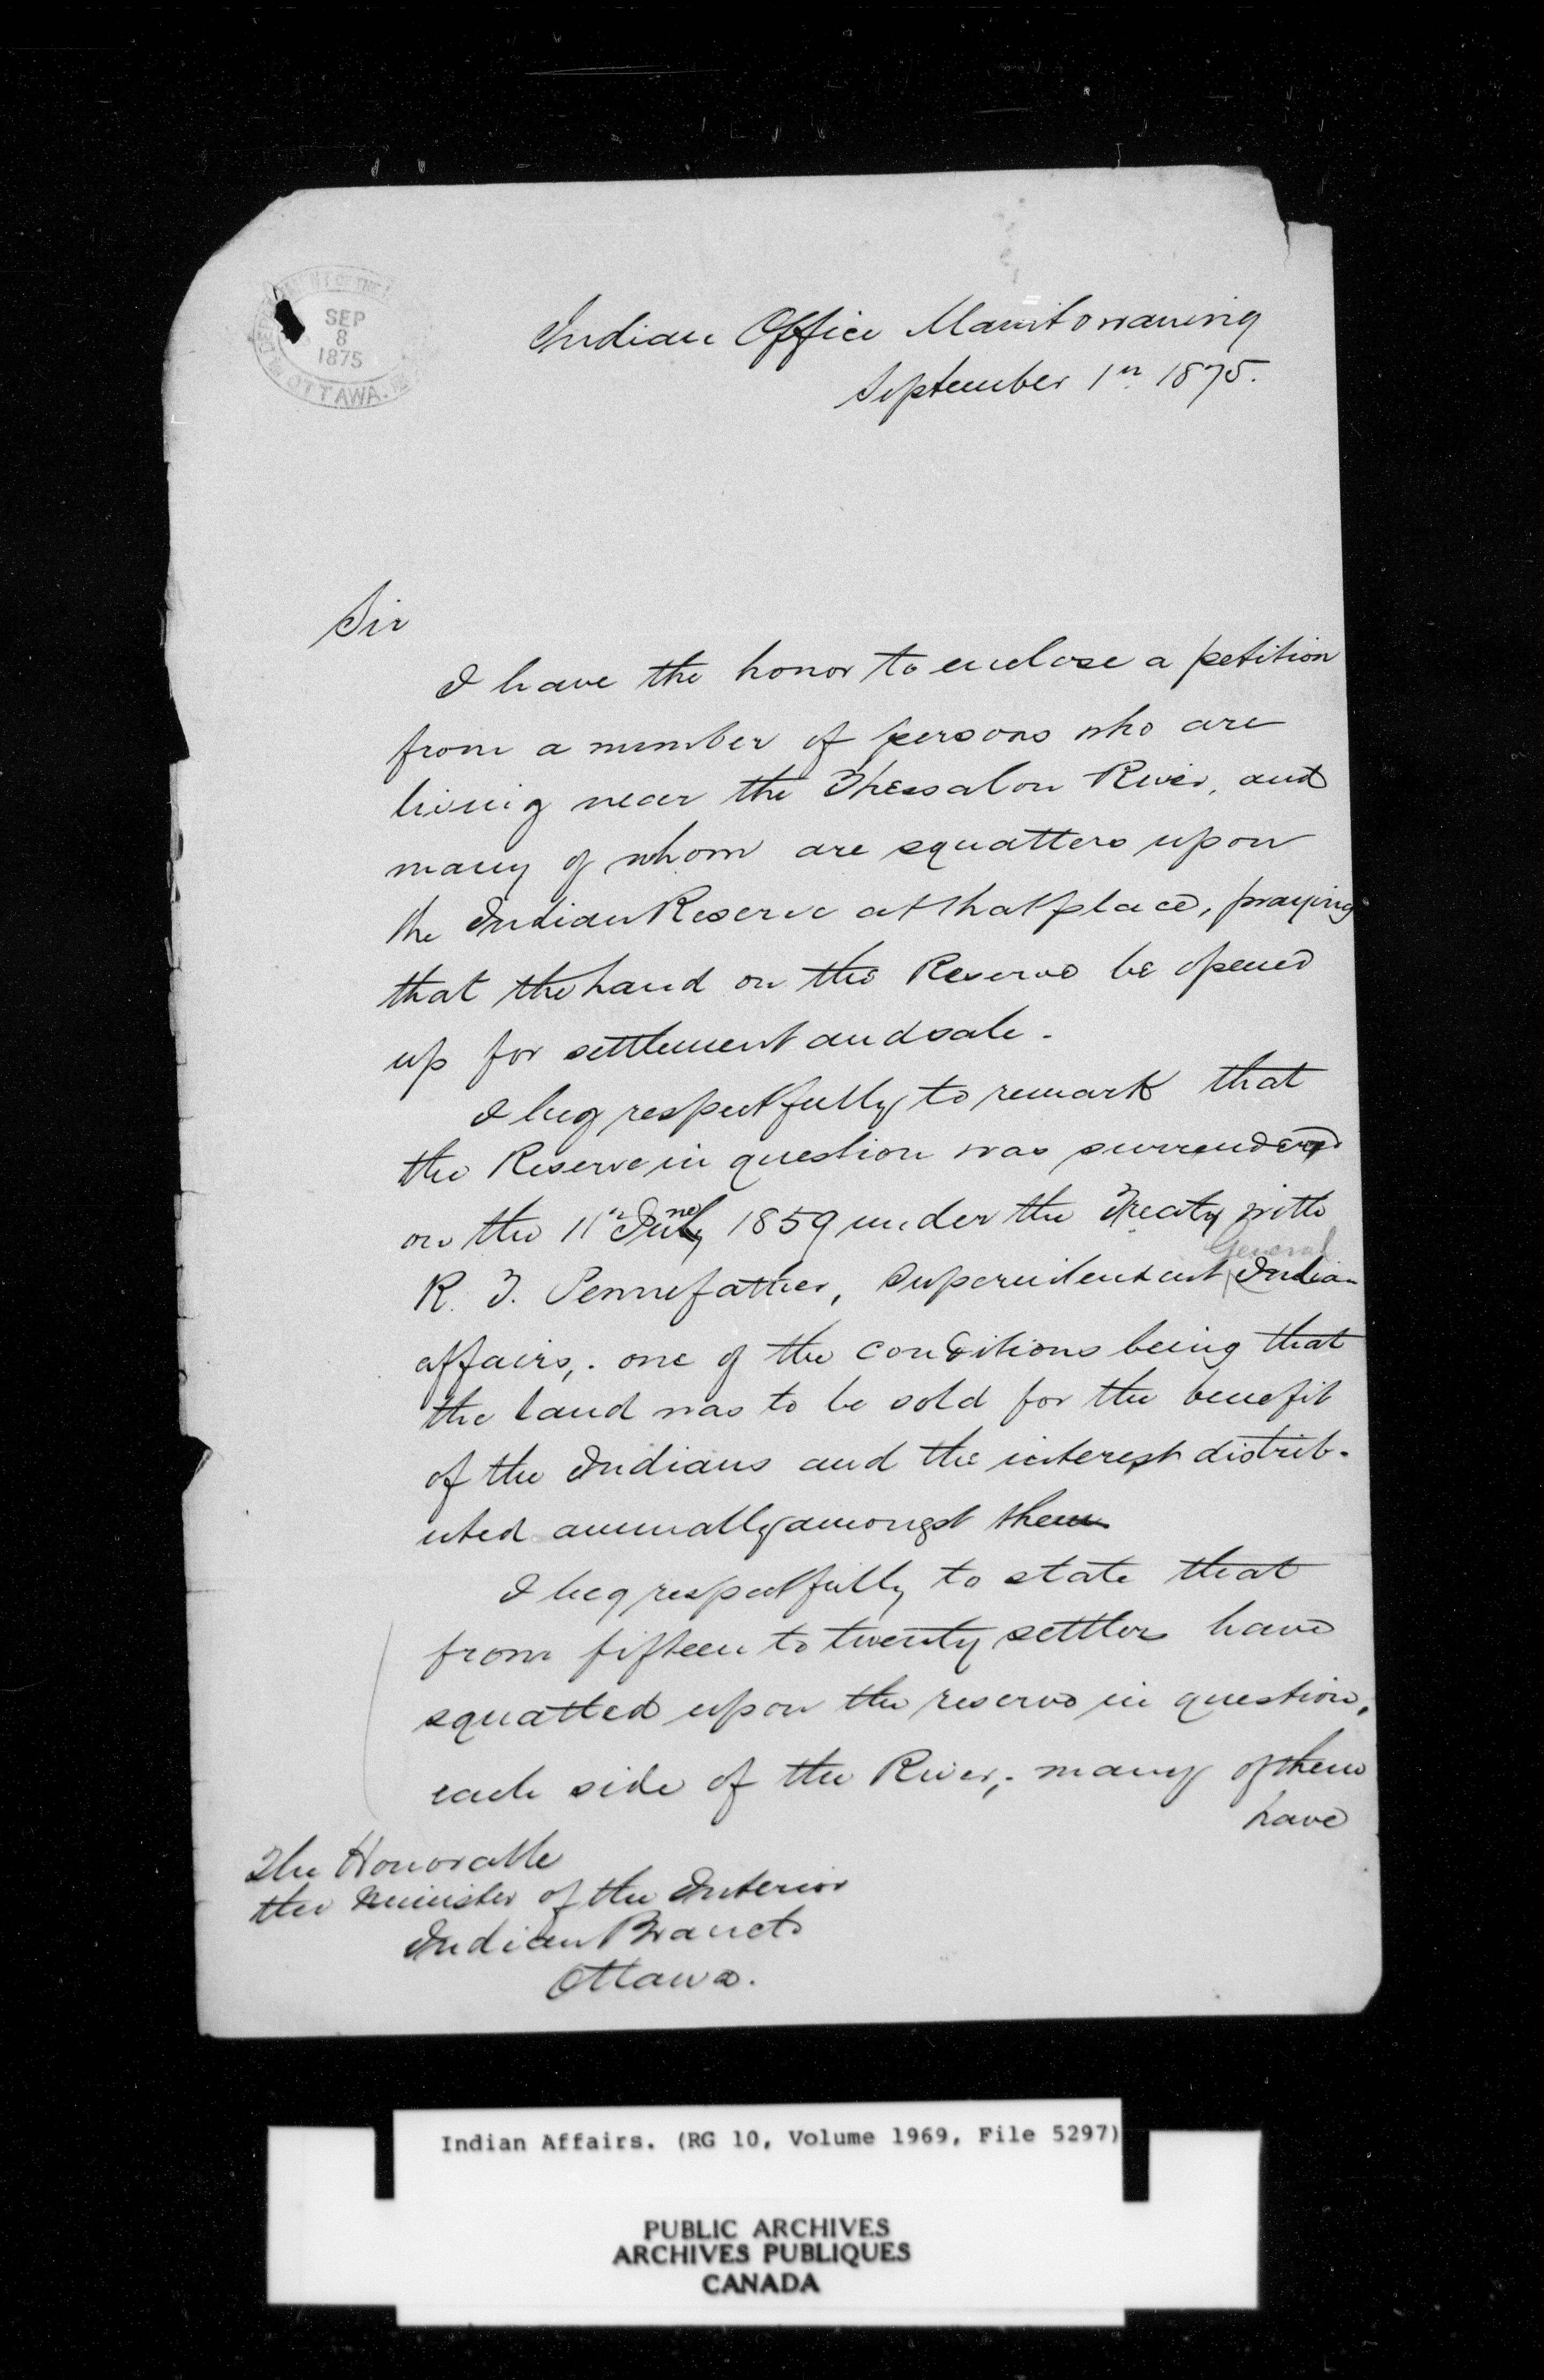 SEP
8
1875
OTTAWA.
Indian Office Manitowaning
September 1st 1875.
Sir
I have the honor to enclose a petition
from a number of persons who are
living near the Thessalon River, and
many of whom are squatters upon
the Indian Reserve at that place, praying
that the land on the Reserve be opened
up for settlement and sale.
I beg respectfully to remark that
the Reserve in question was surrendered
on the 11th June 1859 under the Treaty with
General
R. T. Pennefather, Superintendent Indian
affairs,. one of the conditions being that
the land was to be sold for the benefit
of the Indians and the interest distrib-
uted annually amongst them
I beg respectfully to state that
from fifteen to twenty settlers have
squatted upon the reserve in question,
each side of the River,. many of them
have
The Honorable
the Minister of the Interior
Indian Branch
Ottawa.
Indian Affairs. (RG 10, Volume 1969, File 5297)
PUBLIC ARCHIVES
ARCHIVES PUBLIQUES
CANADA